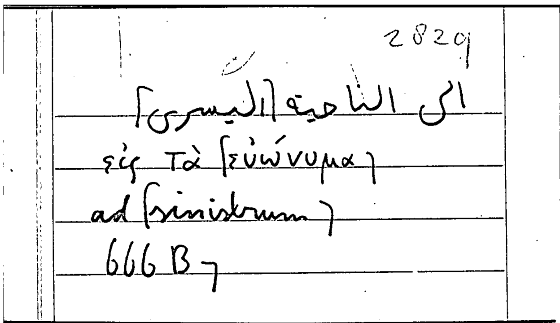 2829
الى الناحية ⌈اليسرى⌉
εἰς τὰ ⌈εὐώνυμα⌉
ad ⌈sinistrum⌉
666 B⌉